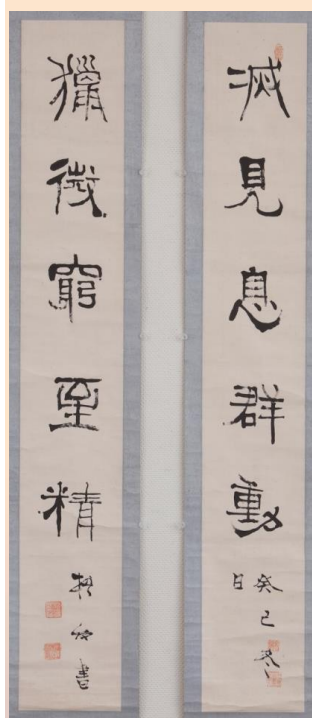 滅見息群動
癸巳冬
日
獵微窮至精
書